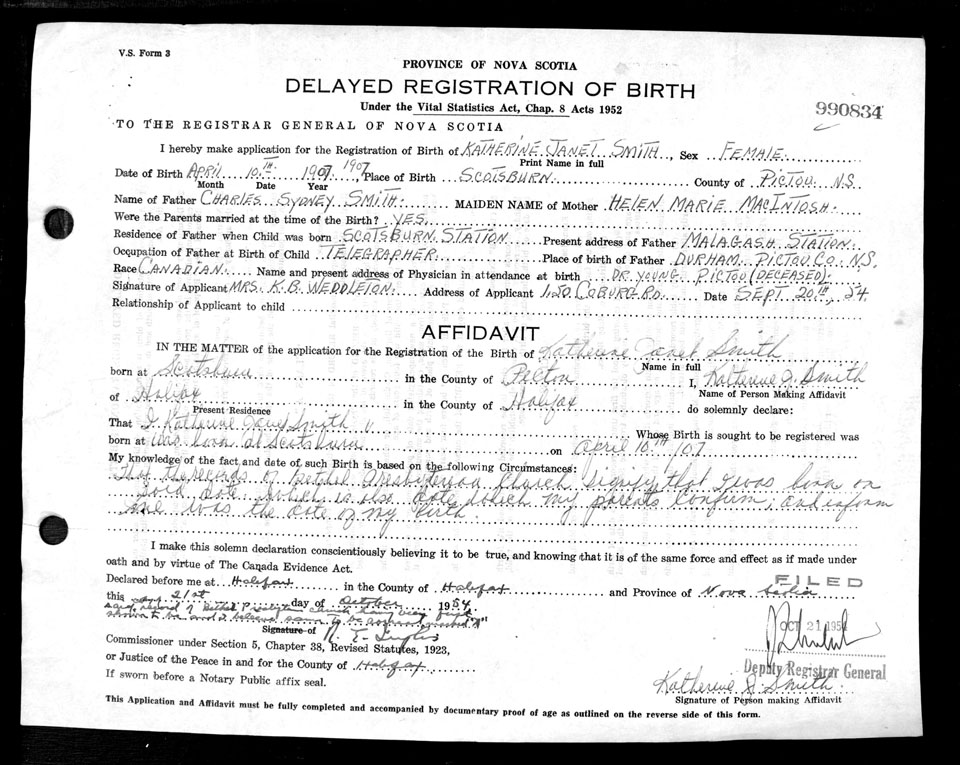 V.S. Form 3
PROVINCE OF NOVA SCOTIA
DELAYED REGISTRATION OF BIRTH
Under the Vital Statistics Act, Chap. 8 Acts 1952
990834
TO THE REGISTRAR GENERAL OF NOVA SCOTIA
I hereby make application for the Registration of Birth of KATHERINE JANET SMITH, Sex FEMALE.
Print Name in full
Date of Birth APRIL 10TH 1907 1907, Place of Birth SCOTSBURN County of PICTOU N.S.
Month Date Year
Name of Father CHARLES SYDNEY SMITH. MAIDEN NAME of Mother HELEN MARIE MACINTOSH.
Were the Parents married at the time of the Birth? YES.
Residence of Father when Child was born SCOTSBURN STATION Present address of Father MALAGASH STATION.
Occupation of Father at Birth of Child TELEGRAPHER. Place of birth of Father DURHAM, PICTOU CO. N.S.
Race CANADIAN. Name and present address of Physician in attendance at birth DR. YOUNG PICTOU (DECEASED).
Signature of Applicant MRS. K.B. WEDDLETON. Address of Applicant 120 COBURG RD. Date SEPT. 20TH, 54.
Relationship of Applicant to child
AFFIDAVIT
IN THE MATTER of the application for the Registration of the Birth of Katherine Janet Smith
Name in full
born at Scotsburn in the County of Pictou I, Katherine J. Smith
Name of Person Making Affidavit
of Halifax in the County of Halifax do solemnly declare:
Present Residence
That I Katherine Janet Smith Whose Birth is sought to be registered was
born at was born at Scotsburn on April 10TH /07
My knowledge of the fact and date of such Birth is based on the following Circumstances:
That the records of Bethel Presbyterian Church signify that I was born on
said date which is also date which my parents confirm, and inform
me was the date of my birth.
I make this solemn declaration conscientiously believing it to be true, and knowing that it is of the same force and effect as if made under
oath and by virtue of The Canada Evidence Act.
Declared before me at Halifax in the County of Halifax and Province of Nova Scotia
FILED
this 21st day of October 1954
said record of Bethel church having been first
shown to me and I believe same to be
Signature of
OCT 21 1954
Commissioner under Section 5, Chapter 38, Revised Statutes, 1923,
or Justice of the Peace in and for the County of Halifax
Deputy Registrar General
If sworn before a Notary Public affix seal.
Katherine J. Smith
Signature of Person making Affidavit
This Application and Affidavit must be fully completed and accompanied by documentary proof of age as outlined on the reverse side of this form.